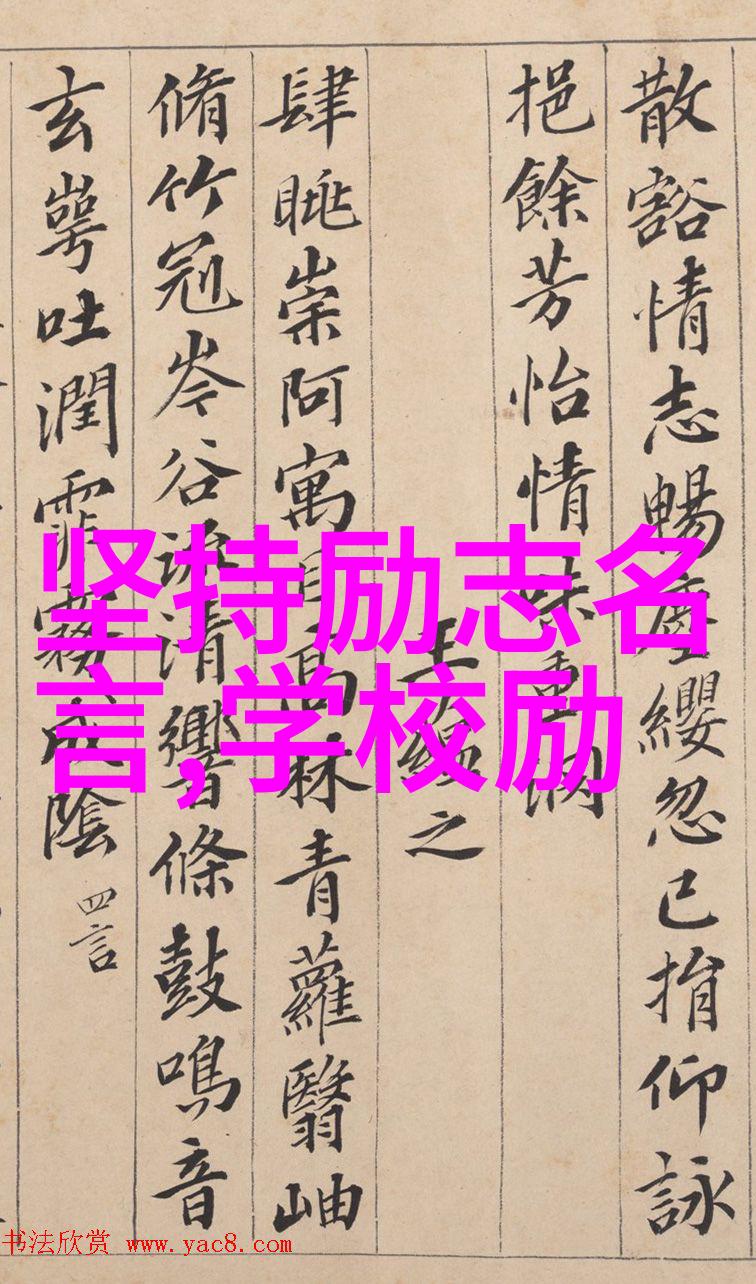 散豁情志暢塵纓忽已捐仰詠
挹餘芳怡情味重淵
王蘊之
肆眺崇阿寓目高林青蘿翳岫
脩竹冠岑谷流清響條鼓鳴音
玄崿吐潤霏霧成陰 四言
坚持励志名
言,学校励
书法欣赏 www.yac8.com